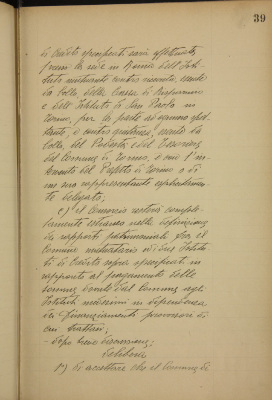 39
di Credito specificati sarà effettuato,
presso la sede in Roma dell'Isti-
tuto mutuante contro ricevuta, esente
da bollo della Cassa di Risparmio
e dell'Istituto di San Paolo in
Torino, per la parte ad ognuno spet-
tante, e contro quietanza, esente da
bollo, del Podestà e del Tesoriere
del Comune di Torino, e con l'in-
tervento del Prefetto di Torino o di
un suo rappresentante espressamen-
te delegato;
e) il Consorzio resterà comple-
tamente estraneo nella definizione
dei rapporti patrimoniali fra il
Comune mutuatario e i due Istitu-
ti di Credito sopra specificati in
rapporto al pagamento delle
somme dovute dal Comune agli
Istituti medesimi in dipendenza
dei finanziamenti provvisori di
cui trattasi;
- dopo breve discussione;
Delibera
1°) di accettare che il Comune di